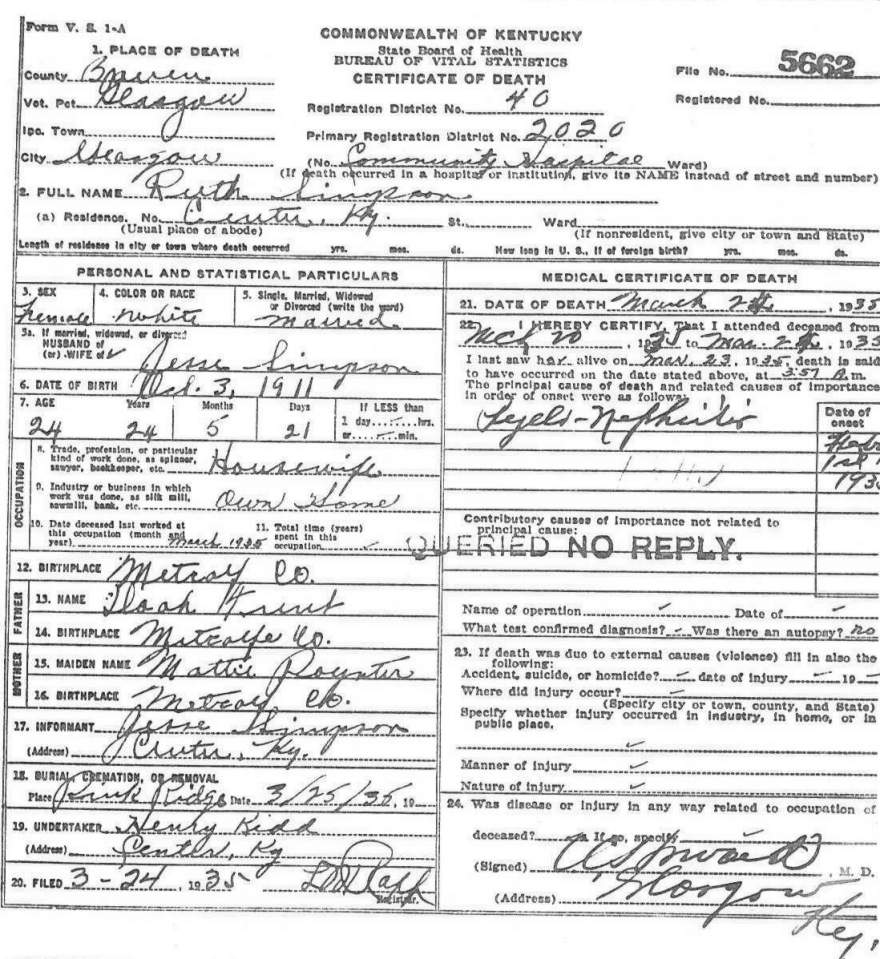 Form V. S. 1-A
COMMONWEALTH OF KENTUCKY
State Board of Health
BUREAU OF VITAL STATISTICS
CERTIFICATE OF DEATH
File No. 5662
Registered No.
1. PLACE OF DEATH
County
Vot. Pct. Glasgow
Registration District No. 40
Inc. Town
Primary Registration District No. 2020
City Glasgow
(No. Community Hospital Ward)
(If death occurred in a hospital or institution, give its NAME instead of street and number)
2. FULL NAME Ruth Simpson
(a) Residence. No. Center, Ky. St., Ward
(Usual place of abode)
(If nonresident, give city or town and State)
Length of residence in city or town where death occurred yrs. mos. ds. How long in U. S., if of foreign birth? yrs. mos. ds.
PERSONAL AND STATISTICAL PARTICULARS
3. SEX
Female
4. COLOR OR RACE
White
5. Single, Married, Widowed
or Divorced (write the word)
Married
5a. If married, widowed, or divorced
HUSBAND of
(or) WIFE of Jesse Simpson
6. DATE OF BIRTH Oct. 3, 1911
7. AGE Years Months Days If LESS than
1 day hrs.
or min.
24 24 5 21
OCCUPATION
8. Trade, profession, or particular
kind of work done, as spinner,
sawyer, bookkeeper, etc. Housewife
9. Industry or business in which
work was done, as silk mill,
sawmill, bank, etc. Own Home
10. Date deceased last worked at
this occupation (month and
year) March 1935
11. Total time (years)
spent in this
occupation
12. BIRTHPLACE Metcalf Co.
FATHER
13. NAME
14. BIRTHPLACE Metcalfe Co.
MOTHER
15. MAIDEN NAME Mattie Poynter
16. BIRTHPLACE Metcalf Co.
17. INFORMANT Jesse Simpson
(Address) Center, Ky.
18. BURIAL, CREMATION, OR REMOVAL
Place Ridge Date 3/25/35, 19
19. UNDERTAKER Henry Kidd
(Address) Center, Ky
20. FILED 3-24, 1935
Registrar.
MEDICAL CERTIFICATE OF DEATH
21. DATE OF DEATH March 24, 1935
22. I HEREBY CERTIFY, That I attended deceased from
Mch 20, 1935 to Mar. 24, 1935
I last saw her alive on Mar. 23, 1935, death is said
to have occurred on the date stated above, at 3:57 m.
The principal cause of death and related causes of importance
in order of onset were as follows:
Date of
onset
Pyelo-Nephritis
193
Contributory causes of importance not related to
principal cause:
QUERIED NO REPLY.
Name of operation Date of
What test confirmed diagnosis? Was there an autopsy? no
23. If death was due to external causes (violence) fill in also the
following:
Accident, suicide, or homicide? date of injury 19
Where did injury occur?
(Specify city or town, county, and State)
Specify whether injury occurred in industry, in home, or in
public place.
Manner of injury
Nature of injury
24. Was disease or injury in any way related to occupation of
deceased? If so, specify
(Signed) M. D.
(Address) Glasgow
Ky.